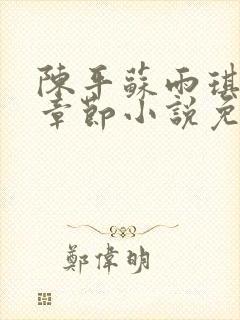 陳平蘇雨琪
章節小說免
鄭偉明